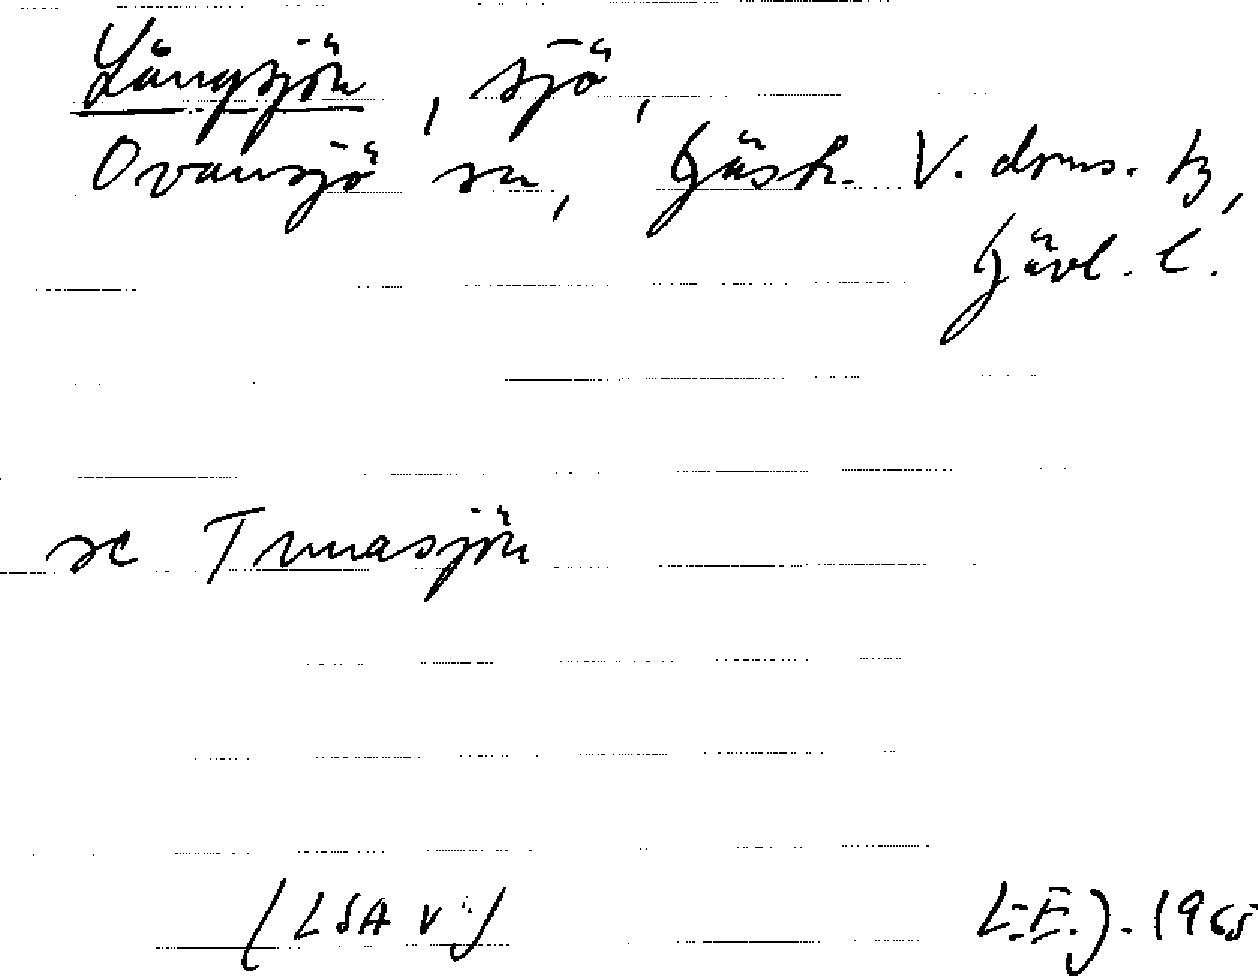 Långsjön, sjö,
Ovansjö sn, Gästr. V. doms. tz,
Gävl. l.
se Tunasjön
(LSA V:) L.E.J. 1965